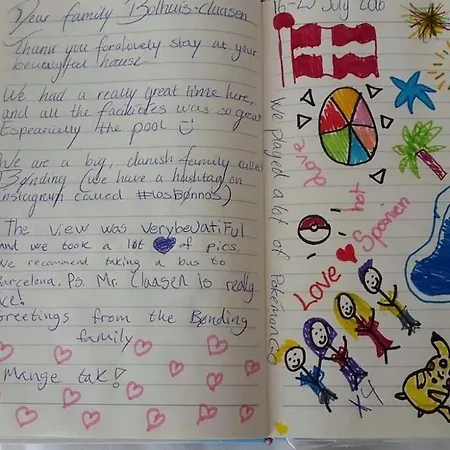 Dear family Bolhuis-claasen
Thank you for lovely stay at your
beautyfull house
We had a really great time here,
and all the facilities was so great
Especarially the pool
We are a big, danish family called
Bønding (we have a hashtag on
instagram called #losbønnos)
The view was verybeuatiful
and we took a lot of pics.
We recommend taking a bus to
Barcelona. Ps. Mr. Claasen is really
nice!
Greetings from the Bønding
family
Mange tak!
16-23 July 2016
We played a lot of Pokémon GO
love
hot
Love Spanien
x4